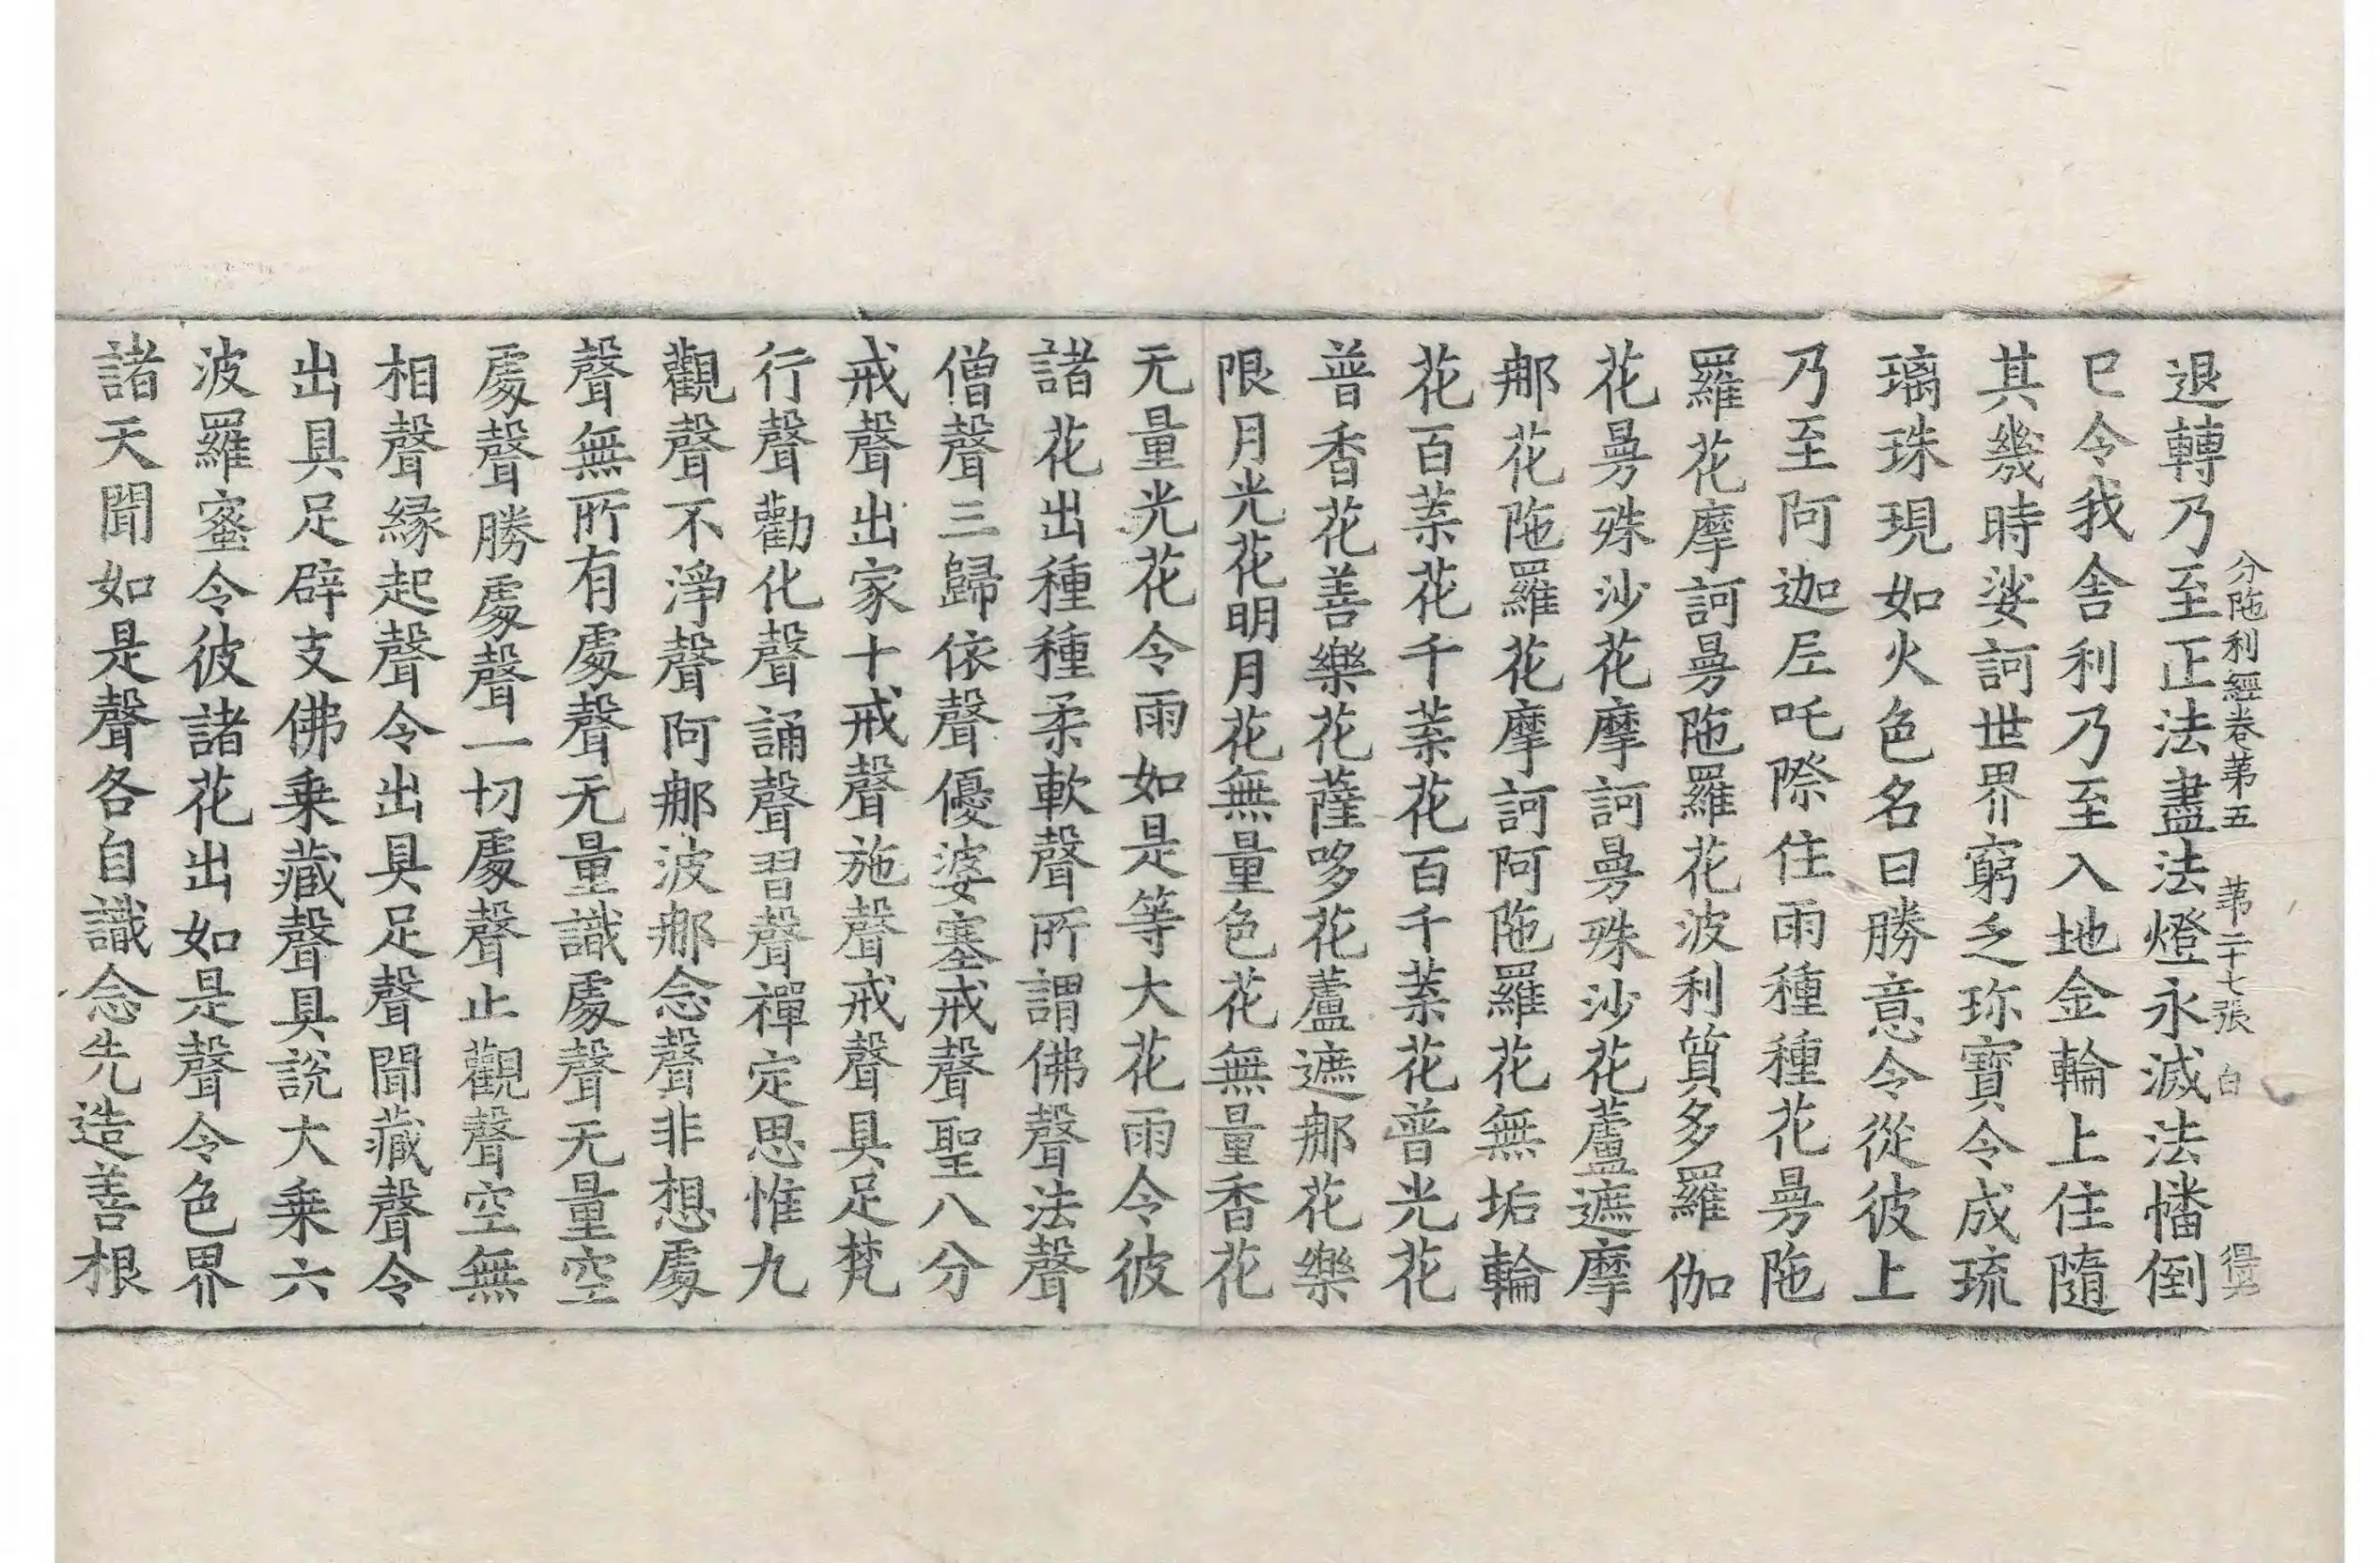 分陁利經卷第五 苐二十七張 白 得
退轉乃至正法盡法燈永滅法幡倒
已令我舍利乃至入地金輪上住隨
其幾時娑訶世界窮乏珎寶令成琉
璃珠現如火色名曰勝意令從彼上
乃至阿迦𡰱吒際住雨種種花曼陁
羅花摩訶曼陁羅花波利質多羅伽
花曼殊沙花摩訶曼殊沙花蘆遮摩
那花陁羅花摩訶阿陁羅花無垢輪
花百葉花千葉花百千葉花普光花
普香花善樂花薩哆花蘆遮那花樂
限月光花明月花無量色花無量香花
无量光花令雨如是等大花雨令彼
諸花出種種柔軟聲所謂佛聲法聲
僧聲三歸依聲優婆塞戒聲聖八分
戒聲出家十戒聲施聲戒聲具足梵
行聲勸化聲誦聲習聲禪定思惟九
觀聲不淨聲阿那波那念聲非想處
聲無所有處聲无量識處聲无量空
處聲勝處聲一切處聲止觀聲空無
相聲緣起聲令出具足聲聞藏聲令
出具足辟支佛乗藏聲具說大乗六
波羅蜜令彼諸花出如是聲令色界
諸天聞如是聲各自識念先造善根